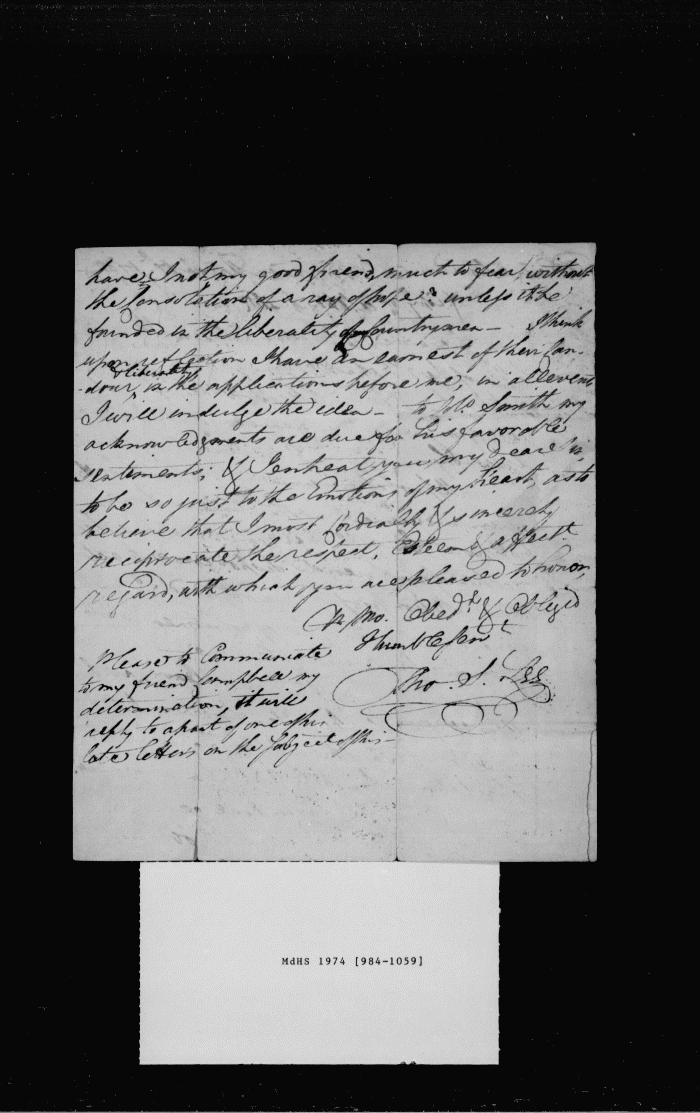 have I not my good friend, much to fear, without
the Consolation of a ray of hope? unless it be
founded in the liberality of Countrymen — I think
upon reflection I have an earnest of their Can-
& liberality
-dour, in the applications before me, in all events
I will indulge the idea — to Mr Smith my
acknowledgments are due for his favorable
sentiments; & I entreat you, my dear Sir,
to be so just to the Emotions of my heart, as to
believe that I most Cordially & sincerely
reciprocate the respect, Esteem & affect.
regard, with which you are pleased to honor,
Yr mo. Obedt & Obliged
Humble Servt
Tho. S. Lee
Please to Communicate
to my friend Campbell my
determination, it will
reply to a part of one of his
late letters on the Subject of this —
MdHS 1974 [984-1059]